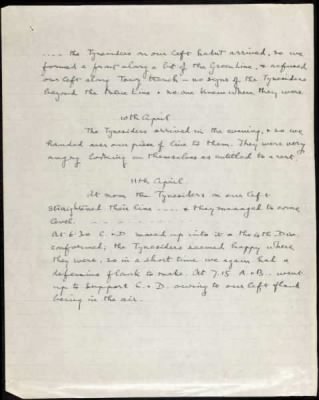 .... the Tynesiders on our left hadnt arrived, so we
formed a front along a bit of the Green Line, & refused
our left along Tony Trench – no signs of the Tynesiders
beyond the Line & no one knew where they were.
10th April
The Tynesiders arrived in the evening, & so we
handed over our piece of line to them. They were very
angry looking on themselves as entitled to a rest.
11th April.
At noon the Tynesiders on our left
straightened their line ..... & they managed to come
level. .... .
At 6.30 C. & D. moved up into it & the 4th Div.
conformed; the Tynesiders seemed happy where
they were, so in a short time we again had a
defensive flank to make. At 7.15 A. & B. went
up to support C. & D. owing to our left flank
being in the air.